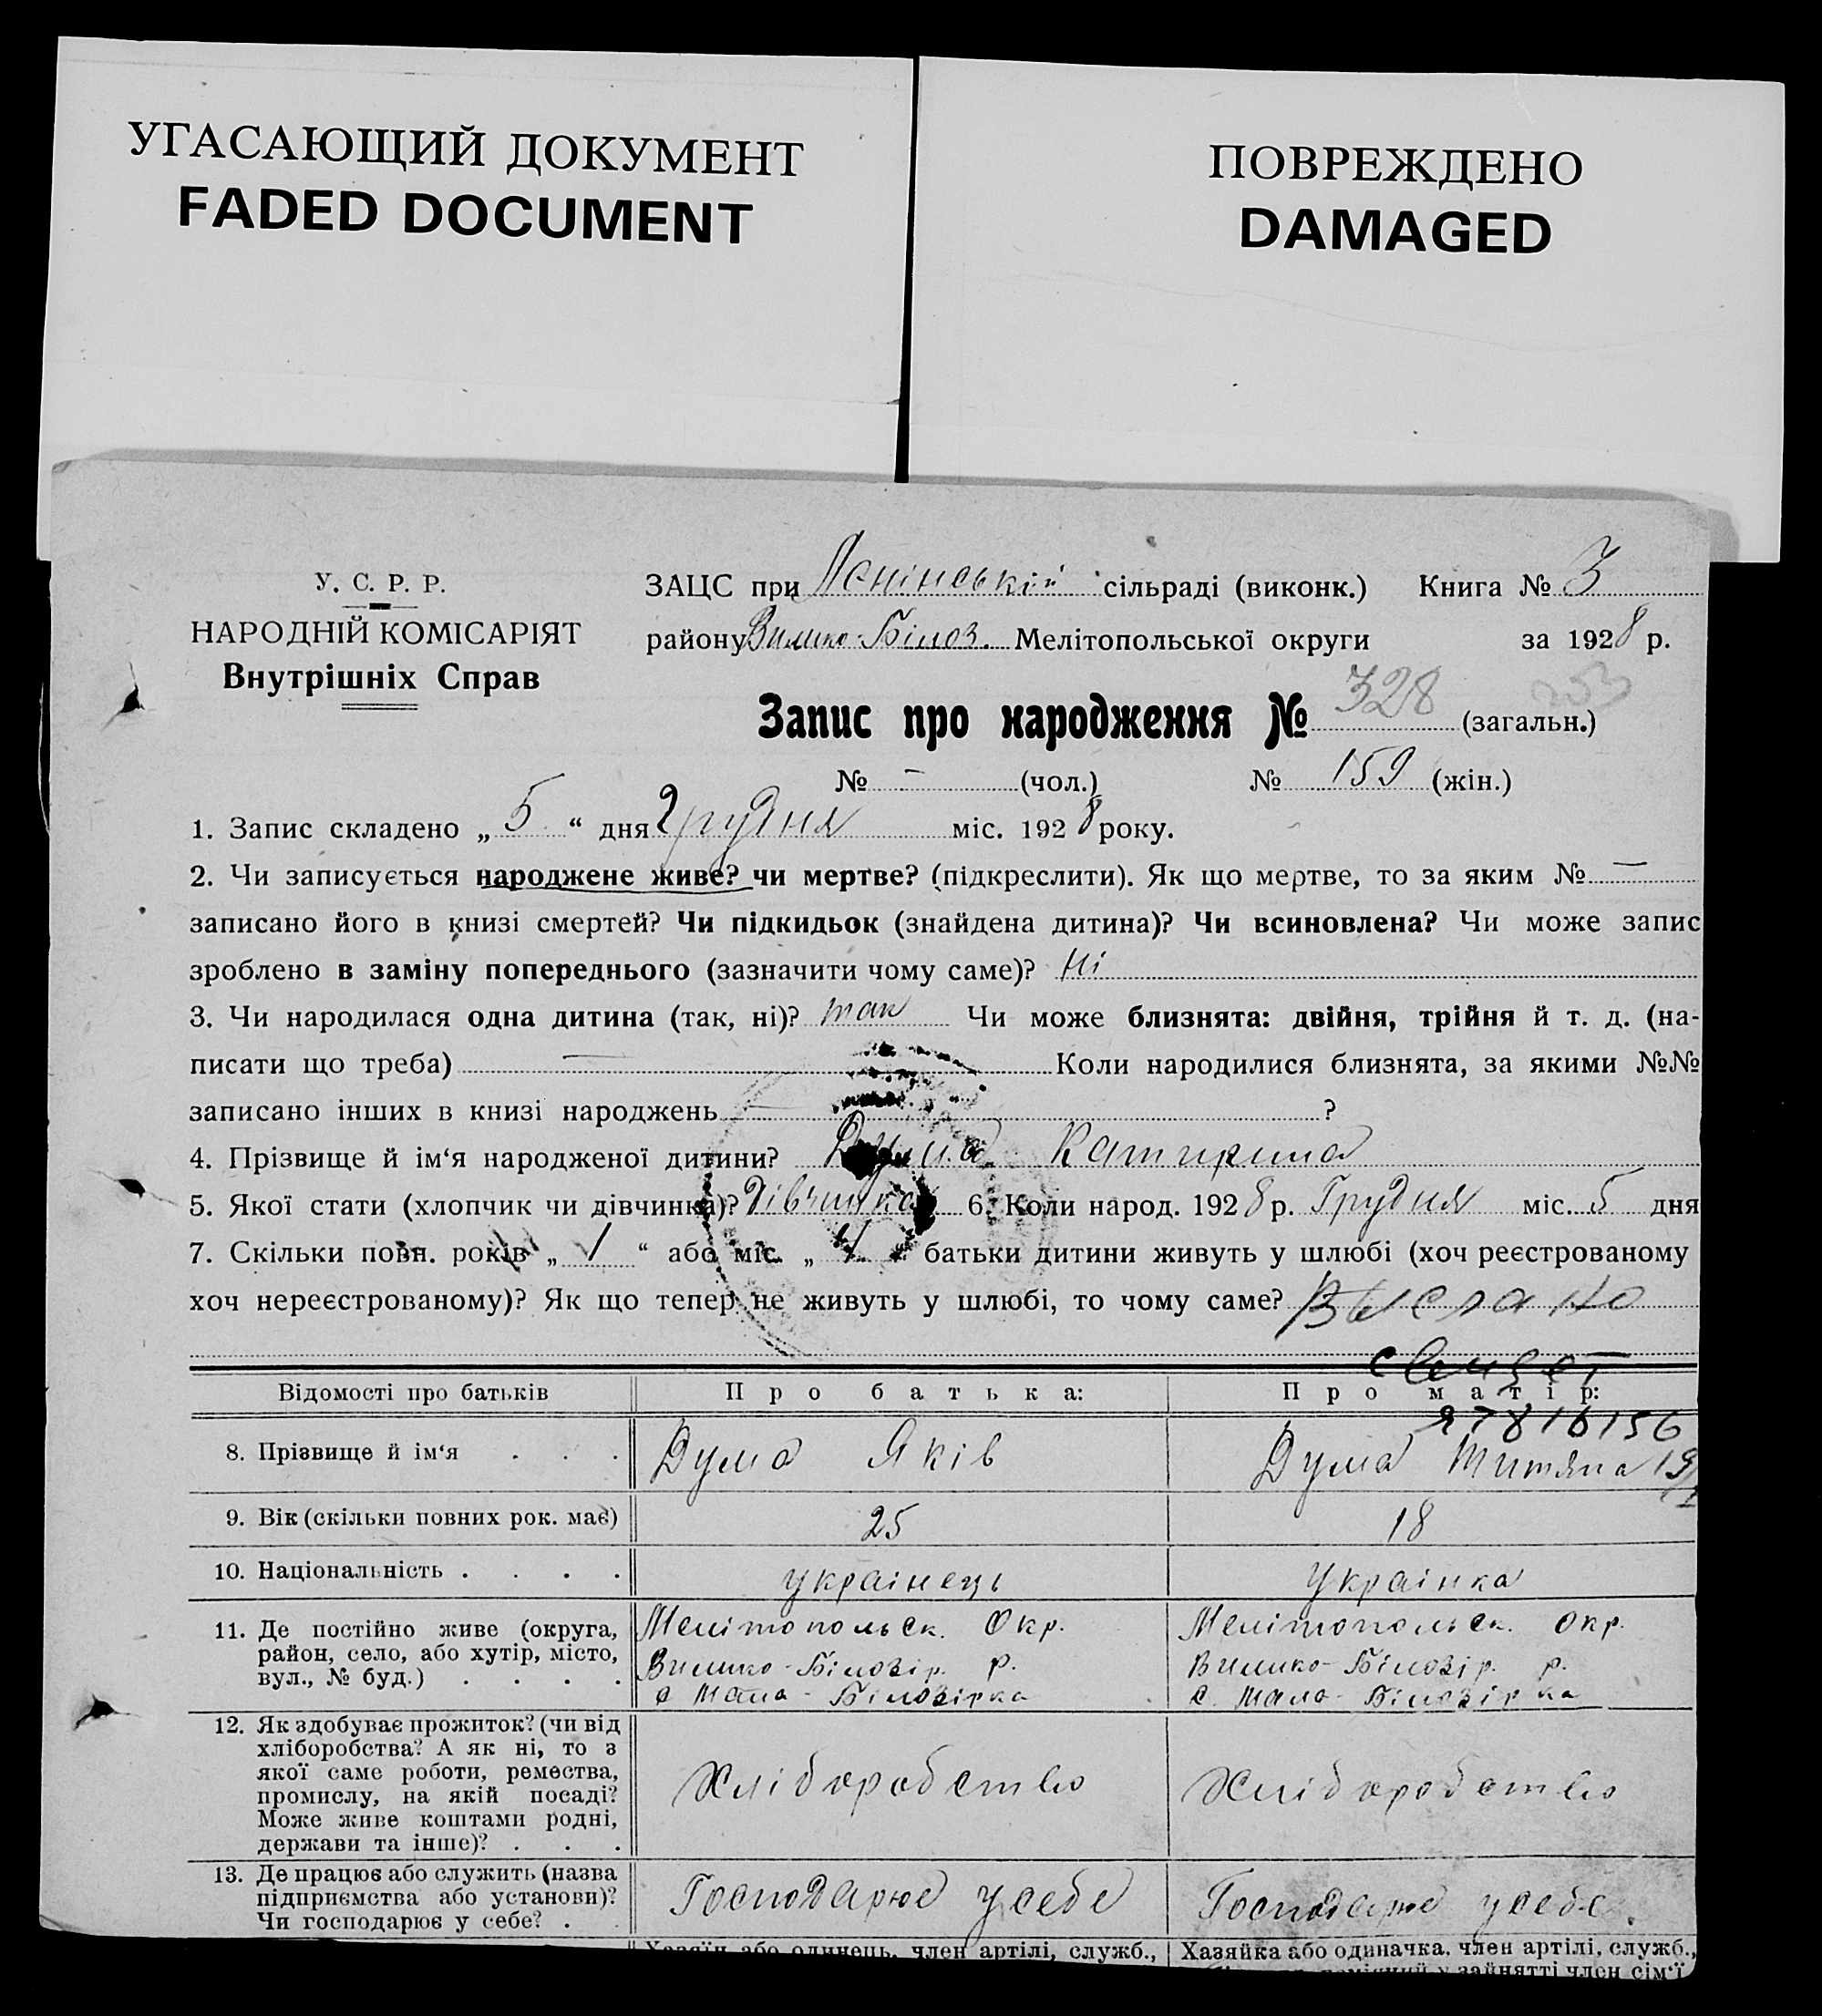 УГАСАЮЩИЙ ДОКУМЕНТ
FADED DOCUMENT
ПОВРЕЖДЕНО
DAMAGED
У. С. Р. Р.
НАРОДНІЙ КОМІСАРІЯТ
Внутрішніх Справ
ЗАЦС при Ленінській сільраді (виконк.) Книга № 3
району Вилико-Білоз. Мелітопольської округи за 1928 р.
Запис про народження № 328 (загальн.)
№ – (чол.) № 159 (жін.)
1. Запис складено „ 5 “ дня Грудня міс. 1928 року.
2. Чи записується народжене живе? чи мертве? (підкреслити). Як що мертве, то за яким № —
записано його в книзі смертей? Чи підкидьок (знайдена дитина)? Чи всиновлена? Чи може запис
зроблено в заміну попереднього (зазначити чому саме)? Ні
3. Чи народилася одна дитина (так, ні)? так Чи може близнята: двійня, трійня й т. д. (на-
писати що треба) — Коли народилися близнята, за якими №№
записано інших в книзі народжень — ?
4. Прізвище й ім‘я народженої дитини? Дума Катирина
5. Якої стати (хлопчик чи дівчинка)? дівчинка 6. Коли народ. 1928 р. Грудня міс. 5 дня
7. Скільки повн. років „ 1 “ або міс. „ батьки дитини живуть у шлюбі (хоч реєстрованому
хоч нереєстрованому)? Як що тепер не живуть у шлюбі, то чому саме? Выслано
Відомості про батьків П р о б а т ь к а: П р о м а т і р:
8. Прізвище й ім‘я . . . Дума Яків Дума Титяна
9. Вік (скільки повних рок. має) 25 18
10. Національність . . . . українець Українка
11. Де постійно живе (округа, Мелітопольск. Окр. Мелітопольск. Окр.
район, село, або хутір, місто, Вилико-Білозір. р. Вилико-Білозір. р.
вул., № буд.) . . . . с Мала-Білозірка с. Мало-Білозірка
12. Як здобуває прожиток? (чи від
хліборобства? А як ні, то з
якої саме роботи, ремества,
промислу, на якій посаді? Хліборобство Хліборобство
Може живе коштами родні,
держави та інше)? . . .
13. Де працює або служить (назва
підприємства або установи)? Господарює у себе Господарює у себе.
Чи господарює у себе? .
Хазяїн або одинець, член артілі, служб., Хазяйка або одиначка, член артілі, служб.,
зайнятті член сім‘ї